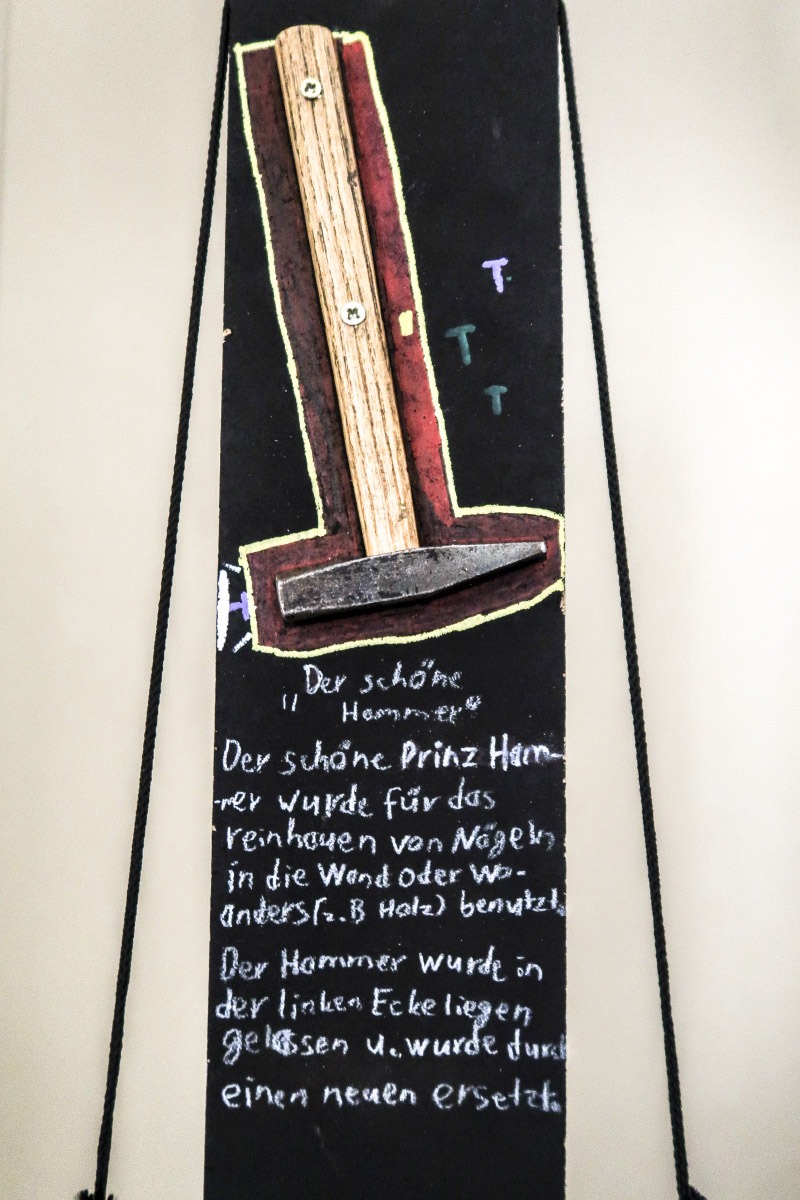 Der schöne
"Hammer"
Der schöne Prinz Ham-
mer wurde für das
reinhauen von Nägeln
in die Wand oder wo-
anders (z.B Holz) benutzt.
Der Hammer wurde in
der linken Ecke liegen
gelassen u. wurde durch
einen neuen ersetzt.